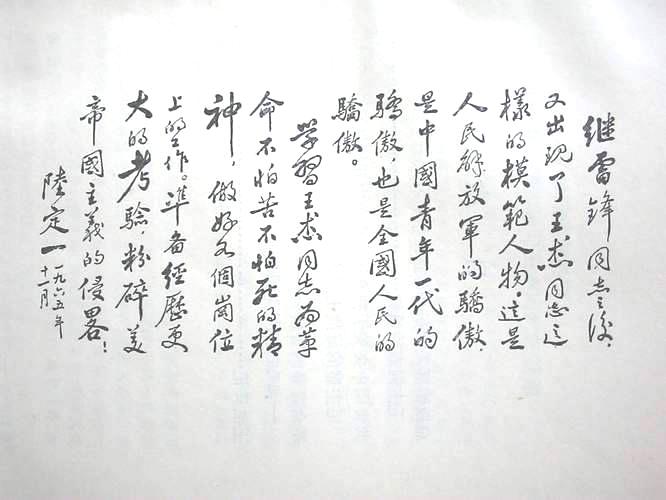 继雷锋同志之后，
又出现了王杰同志这
樣的模範人物。這是
人民解放軍的驕傲，
是中國青年一代的
驕傲，也是全國人民的
驕傲。
学習王杰同志为革
命不怕苦不怕死的精
神，做好各個崗位
上的工作。準备經歷更
大的考驗，粉碎美
帝國主義的侵畧！
陸定一 一九六五年
十一月